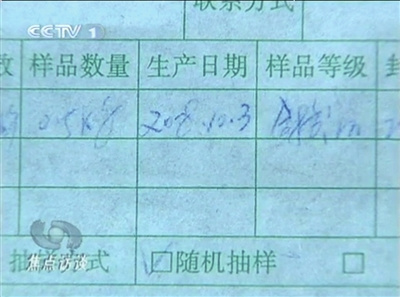 联系方式
CCTV 1
数 样品数量 生产日期 样品等级 封
0.5kg 2008.10.3 合格品
焦点访谈
抽样方式 随机抽样